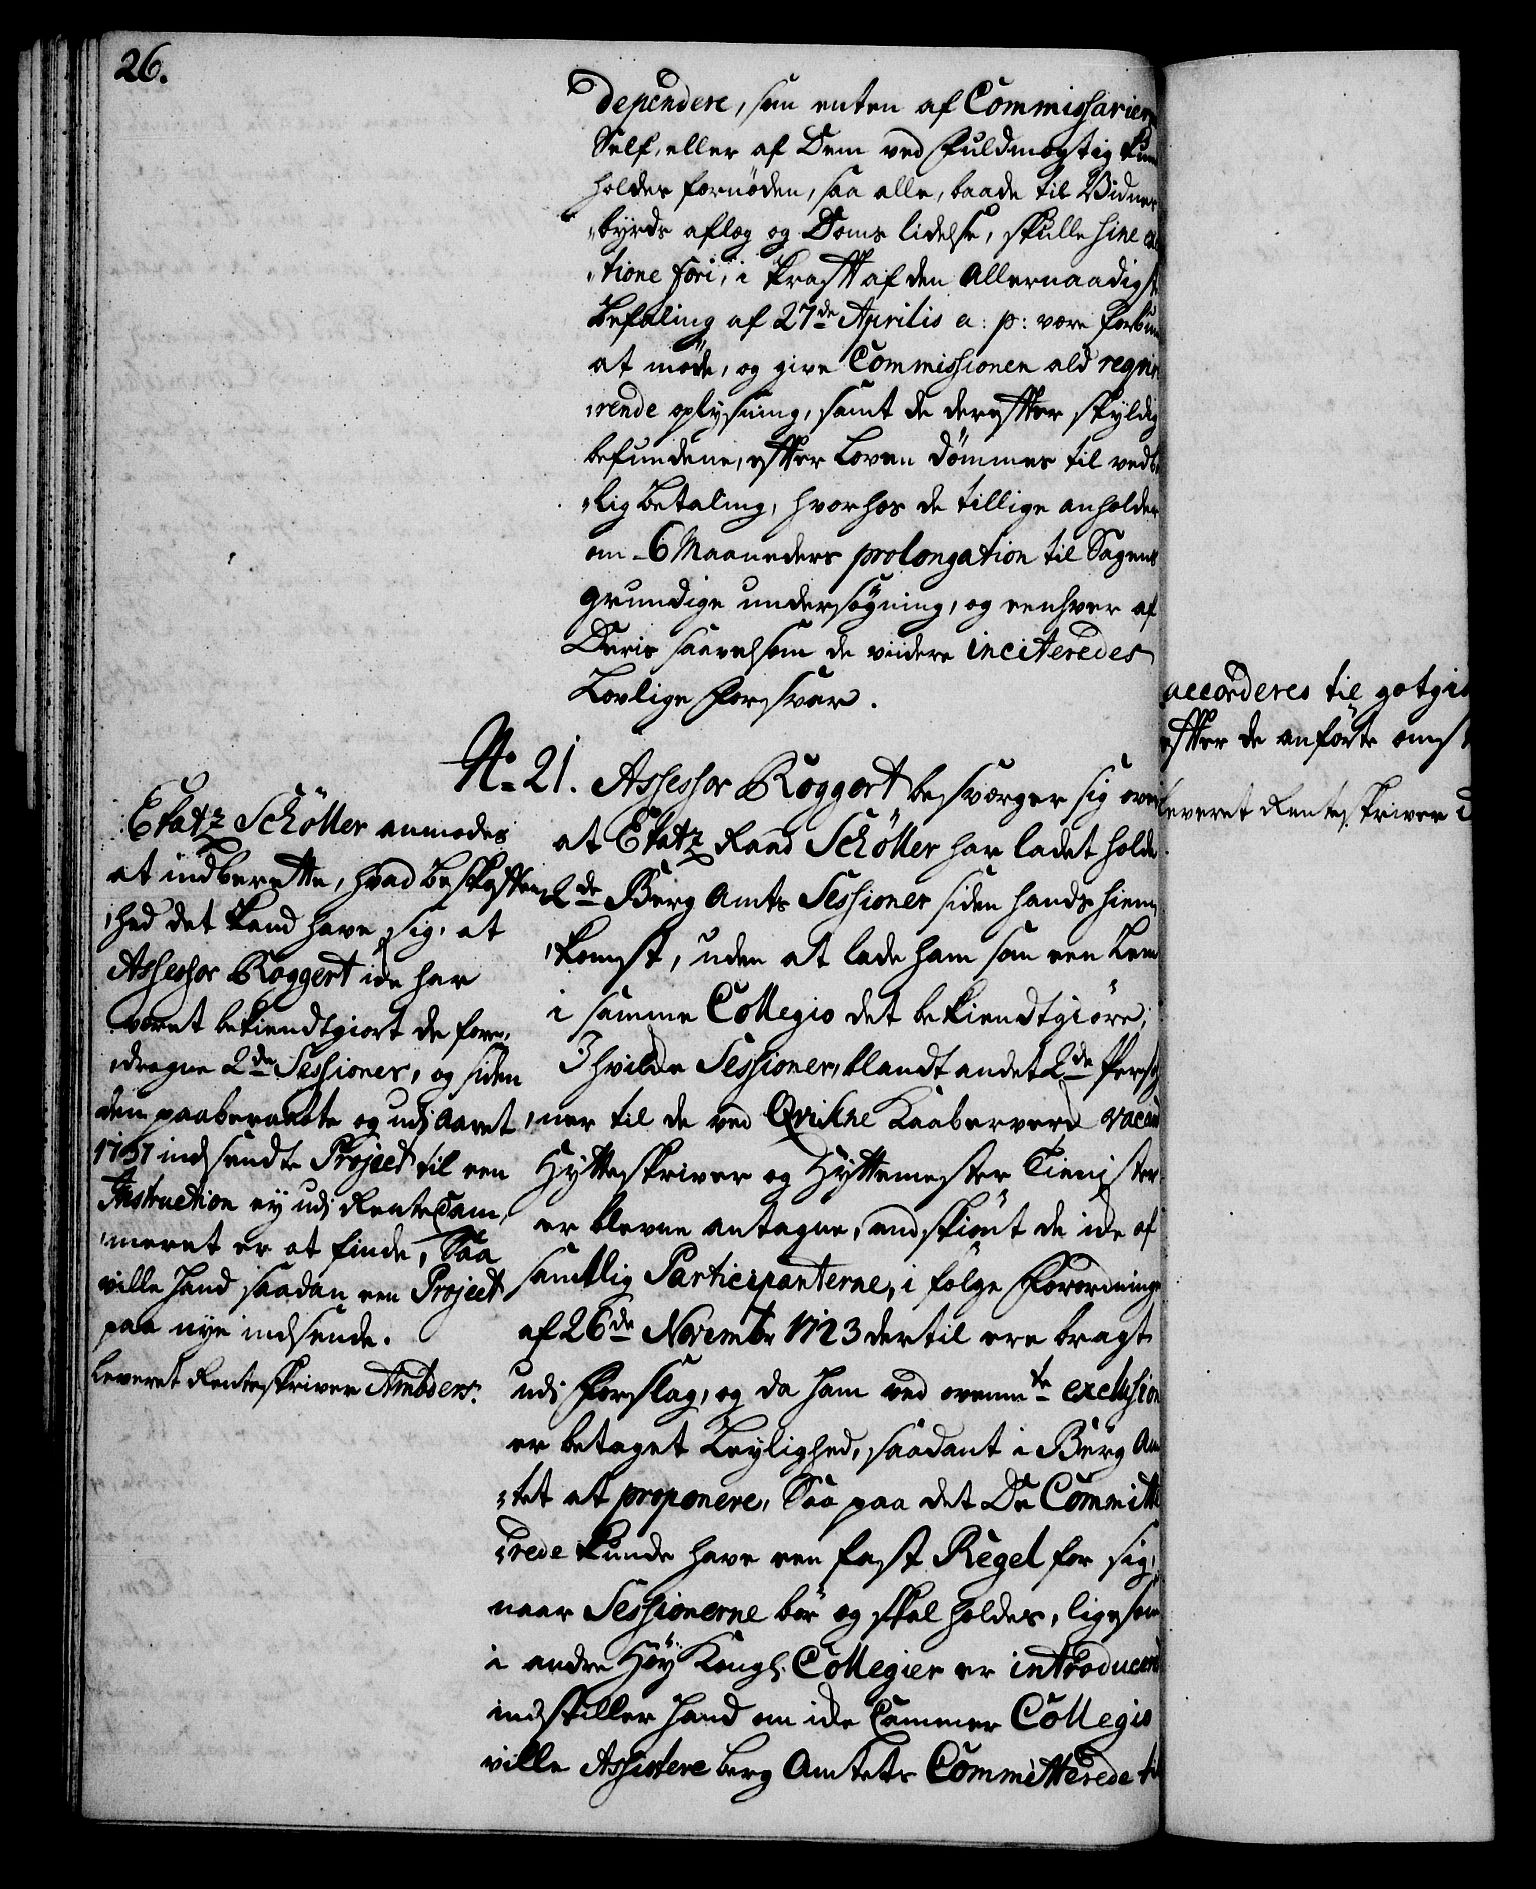 26.
dependere, som enten af Commissarier
Self, eller af Dem ved fuldmegtig kun
holdes fornöden, saa alle, baade til Vidnes
byrds aflæg og Doms lidelse, skulle sine
tione fori, i kraft af den Allernaadigste
Befaling af 27de Aprilis a: p: være forbun
at möde, og give Commissionen ald reqvi
rende oplysning, samt de derefter skyldig
befundene, efter Loven dömmes til vedb
lig betaling, hvorhos de tillige anholder
om 6 Maaneders prolongation til Sagens
grundige undersögning, og eenhver af
Deris saavelsom de viidere inciteredes
Lovlige forsvar.
No. 21. Assessor Roggert besværger sig over
at Etatz Raad Schöller har ladet holde
2de Berg Amts Sessioner siden hands hiem
komst, uden at lade ham som een Lem
i samme Collegio det bekiendtgiöre;
I hvilke Sessioner, blandt andet 2de Perso
ner til de ved Qvikne Kaaberverk vacan
Hytteskriver og Hyttemester Tienister
er blevne antagne, endskiönt de icke af
samtlig Participanterne, i fölge Forordning
af 26de Novembr 1723 dertil ere bragt
udi forslag, og da ham ved ovennte exclusion
er betaget Leylighed, saadant i Berg Am
tet at proponere, Saa paa det De Committe
rede kunde have een fast Regel for sig,
naar Sessionerne bör og skal holdes, ligesom
i andre Höy Kongl. Collegier er introducerd
indstiller hand om icke Cammer Collegio
ville Assistere berg Amtets Committerede til
Etatz Schöller anmodes
at indberette, hvad beskaffen
hed det kand have sig, at
Assessor Roggert icke har
været bekiendtgiort de fore
dragne 2de Sessioner, og siden
den paaberaabte og udi Aaret
1757 indsendte Project til een
Instruction ey udi RenteCam
meret er at finde, Saa
ville Hand saadan een Project
paa nye indsende.
Leveret Renteskriver Amboders.
accorderes til gotgiö
efter de anförte omst
Leveret Renteskriver